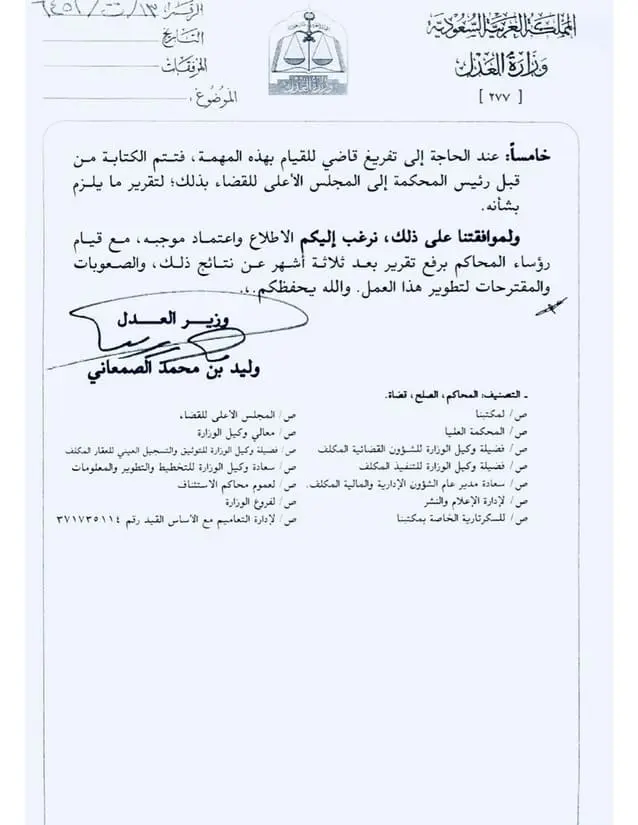 المملكة العربية السعودية
وزارة العدل
[ ٢٧٧ ]
وزارة العدل
الرقم : ١٣/ت/٦٤٥٢
التاريخ :
المرفقات :
الموضوع :
خامساً: عند الحاجة إلى تفريغ قاضي للقيام بهذه المهمة، فتتم الكتابة من
قبل رئيس المحكمة إلى المجلس الأعلى للقضاء بذلك؛ لتقرير ما يلزم
بشأنه.
ولموافقتنا على ذلك، نرغب إليكم الاطلاع واعتماد موجبه، مع قيام
رؤساء المحاكم برفع تقرير بعد ثلاثة أشهر عن نتائج ذلك، والصعوبات
والمقترحات لتطوير هذا العمل. والله يحفظكم.،.
وزير العدل
وليد بن محمد الصمعاني
ـ التصنيف: المحاكم، الصلح، قضاة.
ص/ لمكتبنا
ص/ المحكمة العليا
ص/ فضيلة وكيل الوزارة للشؤون القضائية المكلف
ص/ فضيلة وكيل الوزارة للتنفيذ المكلف
ص/ سعادة مدير عام الشؤون الإدارية والمالية المكلف.
ص/ لإدارة الإعلام والنشر
ص/ للسكرتارية الخاصة بمكتبنا
ص/ المجلس الأعلى للقضاء
ص/ معالي وكيل الوزارة
ص/ فضيلة وكيل الوزارة للتوثيق والتسجيل العيني للعقار المكلف
ص/ سعادة وكيل الوزارة للتخطيط والتطوير والمعلومات
ص/ لعموم محاكم الاستئناف
ص/ لفروع الوزارة
ص/ لإدارة التعاميم مع الأساس القيد رقم ٣٧١٧٣٥١١٤